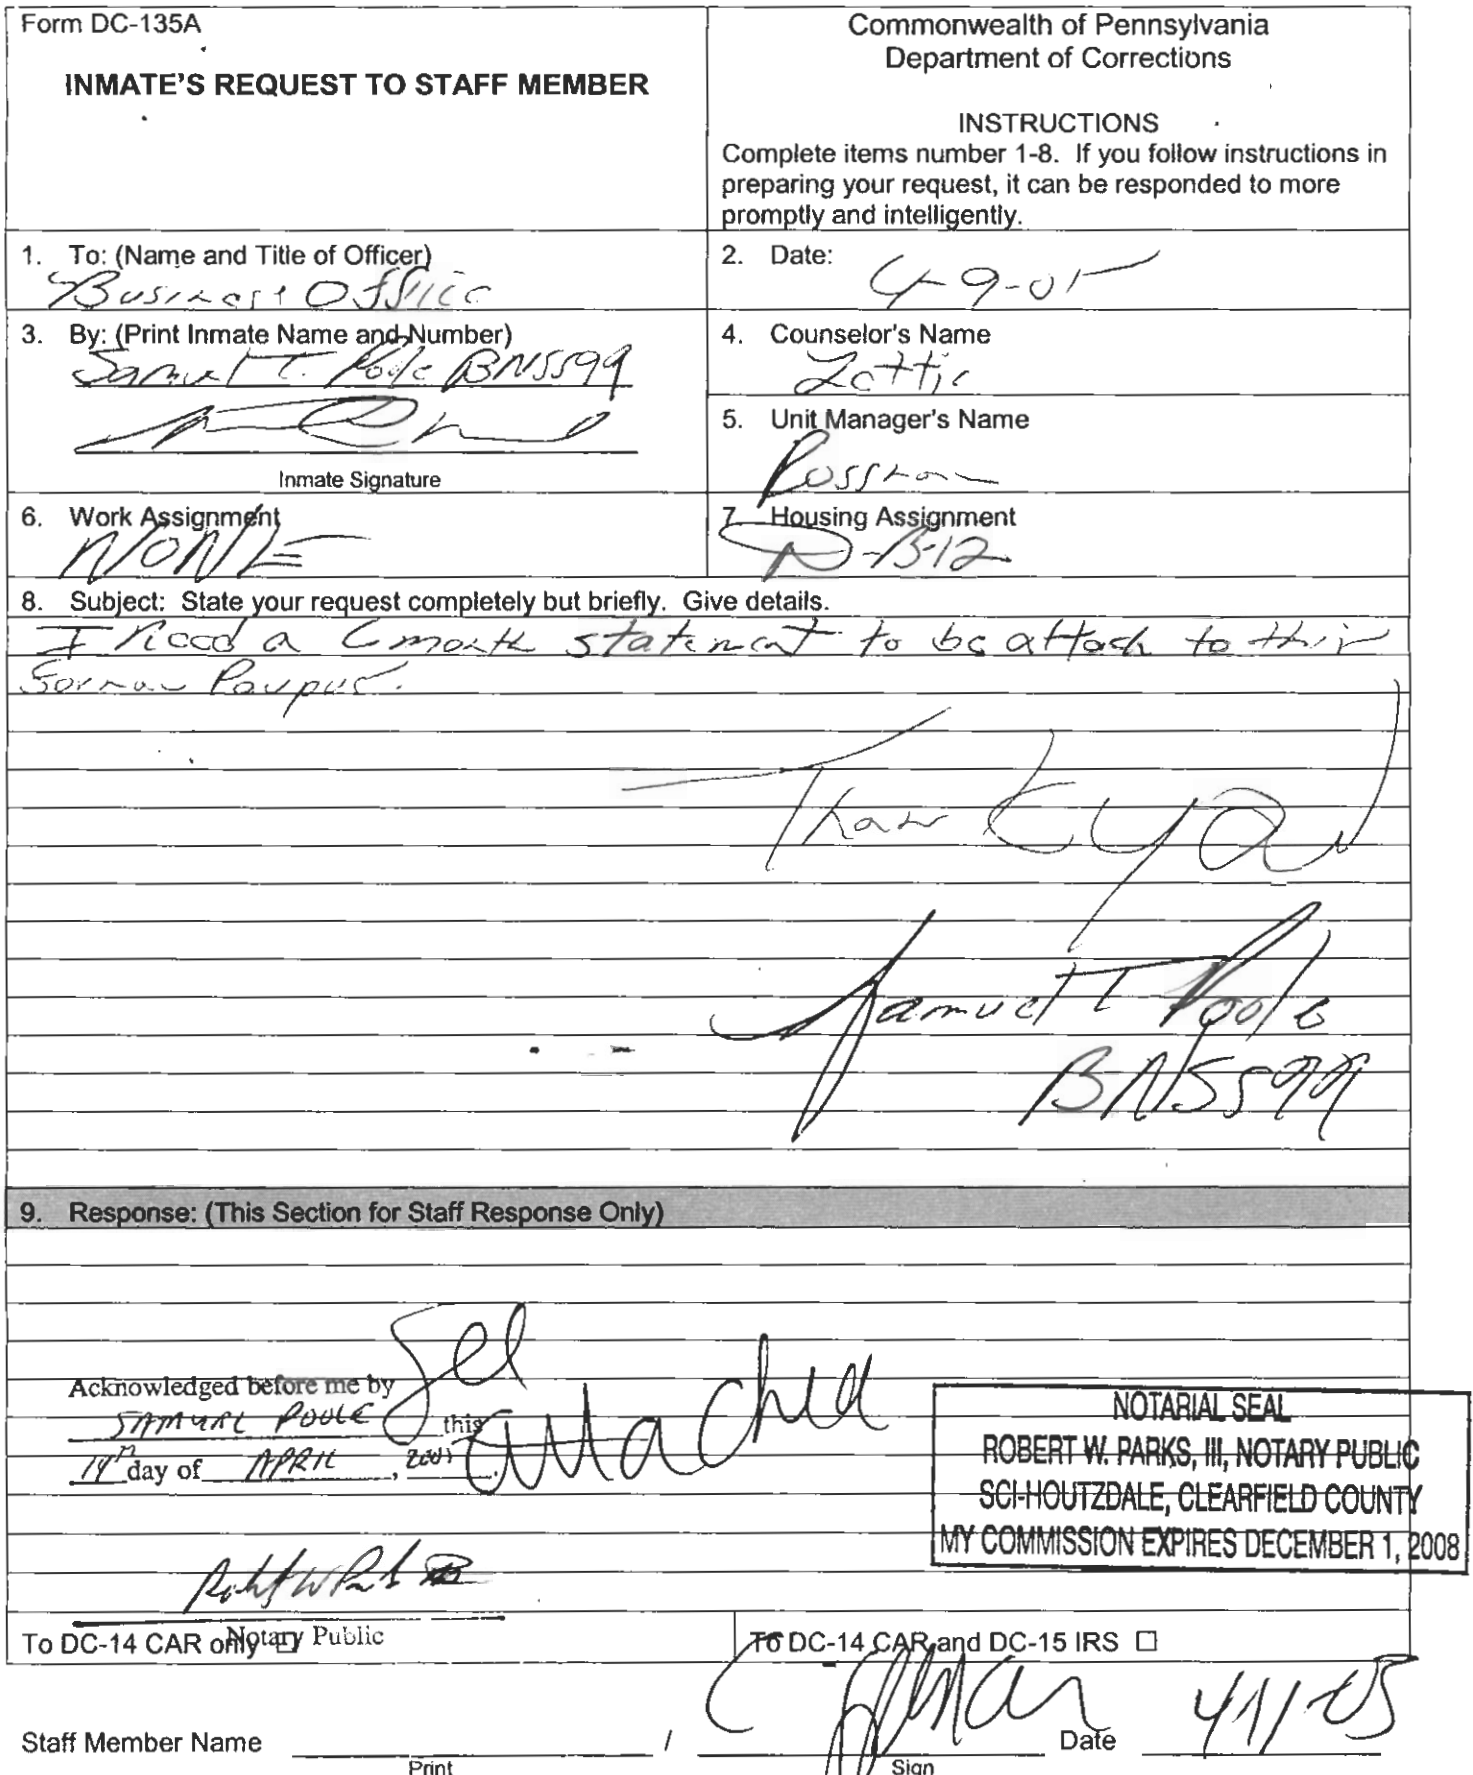 Form DC-135A
INMATE'S REQUEST TO STAFF MEMBER
Commonwealth of Pennsylvania
Department of Corrections
INSTRUCTIONS
Complete items number 1-8. If you follow instructions in
preparing your request, it can be responded to more
promptly and intelligently.
1. To: (Name and Title of Officer)
Business Office
2. Date:
4-9-05
3. By: (Print Inmate Name and Number)
Samuel T. Poole BN5599
Inmate Signature
4. Counselor's Name
5. Unit Manager's Name
6. Work Assignment
NONE
7. Housing Assignment
D-B-12
8. Subject: State your request completely but briefly. Give details.
I need a 6 month statement to be attach to this
Forma Paupus.
Thank you
Samuel T Poole
BN5599
9. Response: (This Section for Staff Response Only)
See
Attached
Acknowledged before me by
SAMUEL POOLE this
14th day of APRIL, 2005.
Notary Public
NOTARIAL SEAL
ROBERT W. PARKS, III, NOTARY PUBLIC
SCI-HOUTZDALE, CLEARFIELD COUNTY
MY COMMISSION EXPIRES DECEMBER 1, 2008
To DC-14 CAR only ☐
To DC-14 CAR and DC-15 IRS ☐
Staff Member Name / Date 4/11/05
Print Sign